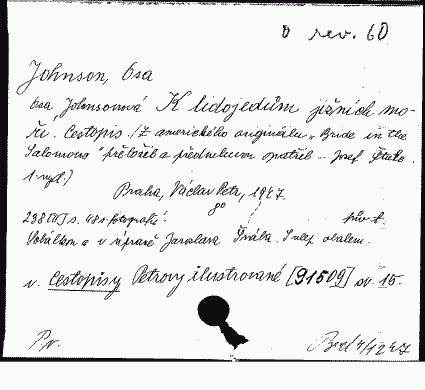 o rev. 60
Johnson, Osa
Osa Johnsonová K lidojedům jižních mo-
ří. Cestopis. /Z amerického originálu „Bride in the
Salomons" přeložil a předmluvou opatřil ... Josef
1. vyd./
Praha, Václav Petr, 1947.
238 s. 48 s. fotografií.
Obálkou a v úpravě Jaroslava Švába. S ilep. obalem.
v. Cestopisy Petrovy ilustrované [91509] sv. 15.
Pv.